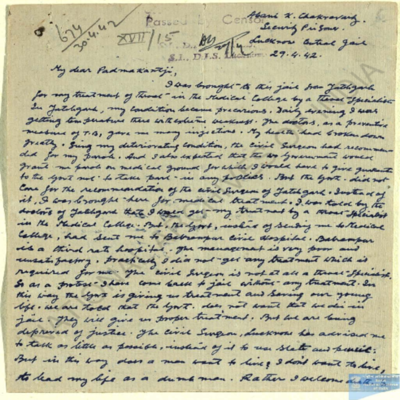 674
30.4.42
Passed by Censor
XVII/15
S.I., D.I.S.
Mani K. Chakravarty,
Security Prisoner
Lucknow Central Jail
29.4.42.
My dear Padmakantji,
I was brought to this jail from Fatehgarh
for my treatment of throat in the Medical College by a throat-specialist.
In Fatehgarh, my condition became serious. Daily evening I was
getting temperature there with extreme weakness. The doctors, as a preventive
measure of T.B., gave me many injections. My health had broken down
greatly. Seeing my deteriorating condition, the Civil Surgeon had recommen-
ded for my parole. And I also expected that the Government would
grant me parole on medical ground for which I would have to give guarantee
to the Govt. not to take part in any politics. But the Govt. did not
care for the recommendation of the Civil Surgeon of Fatehgarh. Instead of
it, I was brought here for medical treatment. I was told by the
doctors of Fatehgarh that I would get my treatment by a throat specialist
in the Medical College. But, the Govt., instead of sending me to Medical
College, had sent me to Balrampur Civil Hospital. Balrampur
is a third rate hospital. The management is very poor and
unsatisfactory. Practically I did not get any treatment which is
required for me. The Civil Surgeon is not at all a throat-specialist.
So as a protest I have come back to jail without any treatment. In
this way the Govt. is giving us treatment and saving our young
life. We are told that the Govt. does not want that we die in
jail. They will give us proper treatment. But we are being
deprived of justice. The Civil Surgeon, Lucknow has advised me
to talk as little as possible, instead of it to use slate and pencil.
But in this way does a man want to live? I don't want to live,
to lead my life as a dumb man. Rather I welcome death